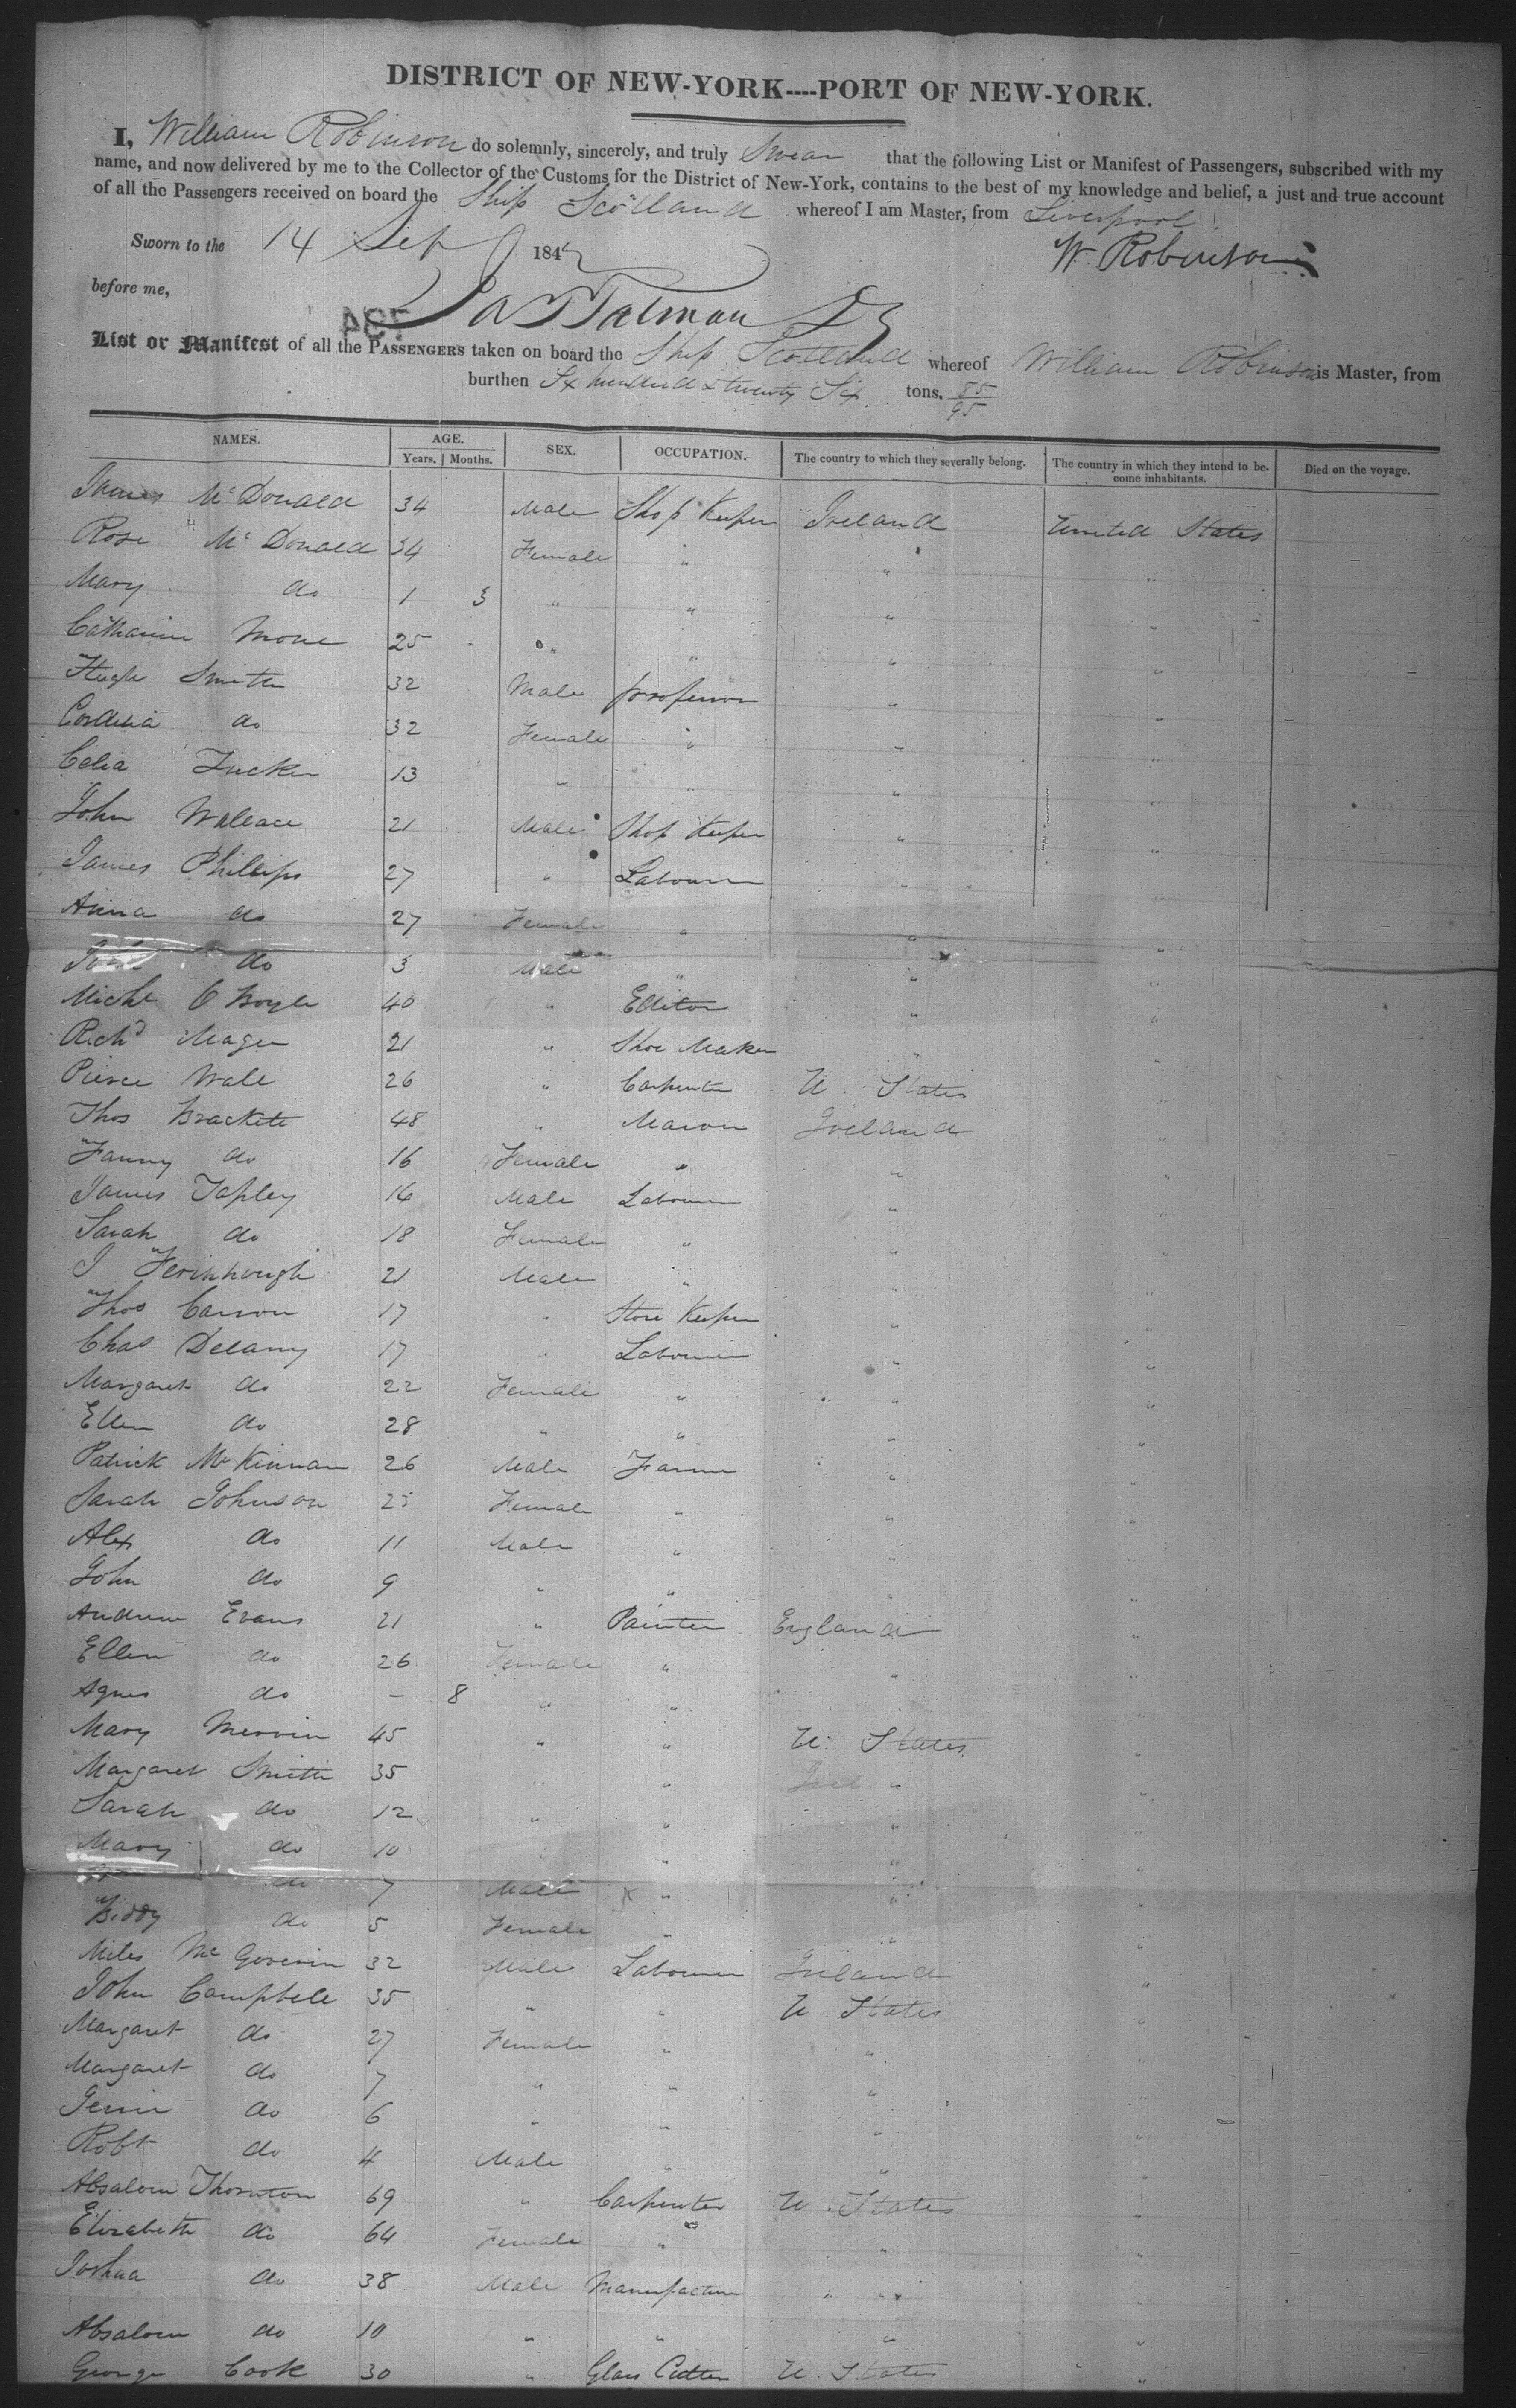 DISTRICT OF NEW-YORK----PORT OF NEW-YORK.
I, William Robinson do solemnly, sincerely, and truly Swear that the following List or Manifest of Passengers, subscribed with my
name, and now delivered by me to the Collector of the Customs for the District of New-York, contains to the best of my knowledge and belief, a just and true account
of all the Passengers received on board the Ship Scotland whereof I am Master, from Liverpool
Sworn to the 14 Sep 184
W. Robinson
before me,
List or Manifest of all the PASSENGERS taken on board the Ship Scotland whereof William Robinson is Master, from
burthen Six hundred & twenty Six tons. 85/95
NAMES. AGE. SEX. OCCUPATION. The country to which they severally belong. The country in which they intend to be- Died on the voyage.
Years. Months. come inhabitants.
James McDonald 34 Male Shop Keeper Ireland United States
Rose McDonald 34 Female " " "
Mary do 1 3 " " " "
Catharine Mone 25 " " " "
Hugh Smith 32 Male professor " "
Cordelia do 32 Female " " "
Celia Tucker 13 " " " "
John Wallace 21 Male Shop Keeper " "
James Phillips 27 " Labourer " "
Anna do 27 Female " " "
do 3 Male " " "
Michl O Boyle 40 " Editor " "
Richd Mager 21 " Shoe Maker " "
Pierce Wall 26 " Carpenter U. States "
Thos Brackett 48 " Mason Ireland "
Fanny do 16 Female " " "
James Tapley 16 Male Labourer " "
Sarah do 18 Female " " "
J 21 Male " " "
Thos Carson 17 " Store Keeper " "
Chas Delany 17 " Labourer " "
Margaret do 22 Female " " "
Ellen do 28 " " " "
Patrick McKinnan 26 Male Farmer " "
Sarah Johnson Female " " "
Alex do 11 Male " " "
John do 9 " " " "
Andrew Evans 21 " Painter England "
Ellen do 26 Female " " "
Agnes do - 8 " " " "
Mary Mervin 45 " " U. States "
Margaret Smith 35 " " "
Sarah do 12 " " " "
Mary do 10 " " "
do 7 Male " " "
Biddy do 5 Female " " "
Miles McGovern 32 Male Labourer Ireland "
John Campbell 35 " " U. States "
Margaret do 27 Female " " "
Margaret do 7 " " " "
do 6 " " " "
Robt do 4 Male " " "
Absalom Thornton 69 " Carpenter U. States "
Elizabeth do 64 Female " " "
Joshua do 38 Male Manufacturer " "
Absalom do 10 " " " "
George Cook 30 " Glass Cutter U. States "